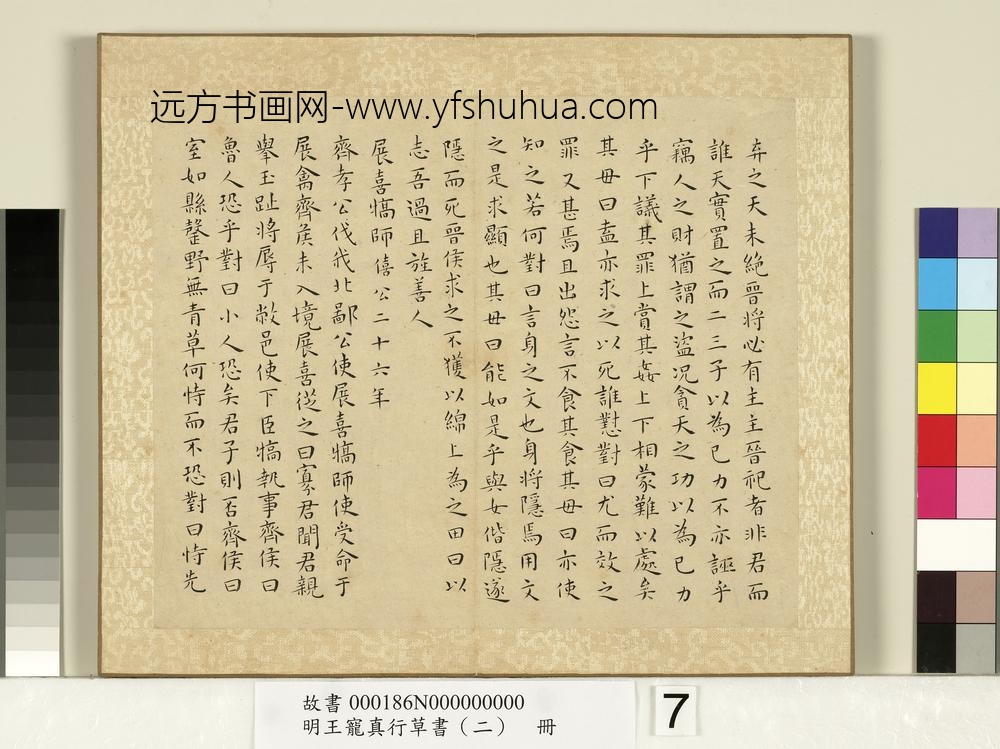 远方书画网-www.yfshuhua.com
弃之天未絶晉將必有主主晉祀者非君而
誰天實置之而二三子以為己力不亦誣乎
竊人之財猶謂之盜况貪天之功以為己力
乎下議其罪上賞其姦上下相蒙難以處矣
其毋曰盍亦求之以死誰懟對曰尤而效之
罪又甚焉且出怨言不食其食其毋曰亦使
知之若何對曰言身之文也身將隱焉用文
之是求顯也其毋曰能如是乎與女偕隱遂
隱而死晉侯求之不獲以綿上為之田曰以
志吾過且旌善人
展喜犒師僖公二十六年
齊孝公伐我北鄙公使展喜犒師使受命于
展禽齊侯未入境展喜從之曰寡君聞君親
舉玉趾將辱于敝邑使下臣犒執事齊侯曰
魯人恐乎對曰小人恐矣君子則否齊侯曰
室如縣罄野無青草何恃而不恐對曰恃先
故書 000186N000000000
明王寵真行草書（二） 冊
7